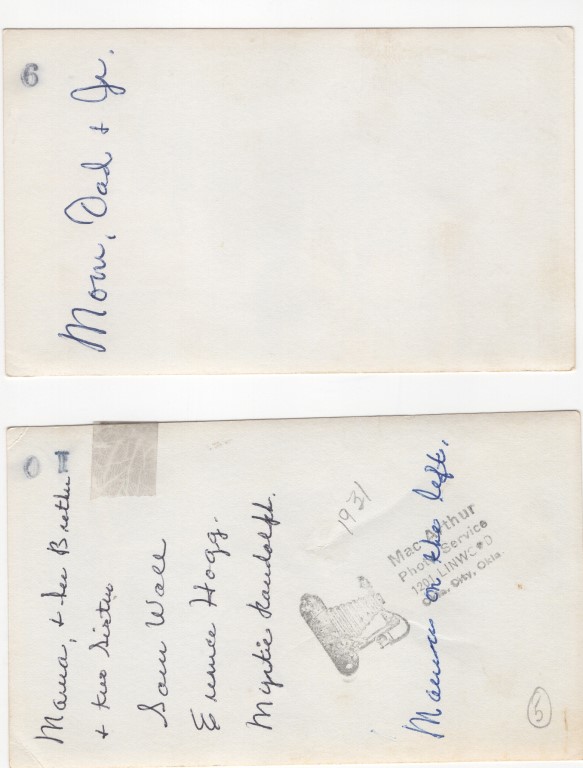 6
Mom, Dad & Jr.
Mama, & her Brother
& two Sister
Sam Wall
Hogg.
Mystic Randolph.
1931
MacArthur
Photo Service
1201 LINWOOD
Okla. City, Okla.
Mama on the left.
5